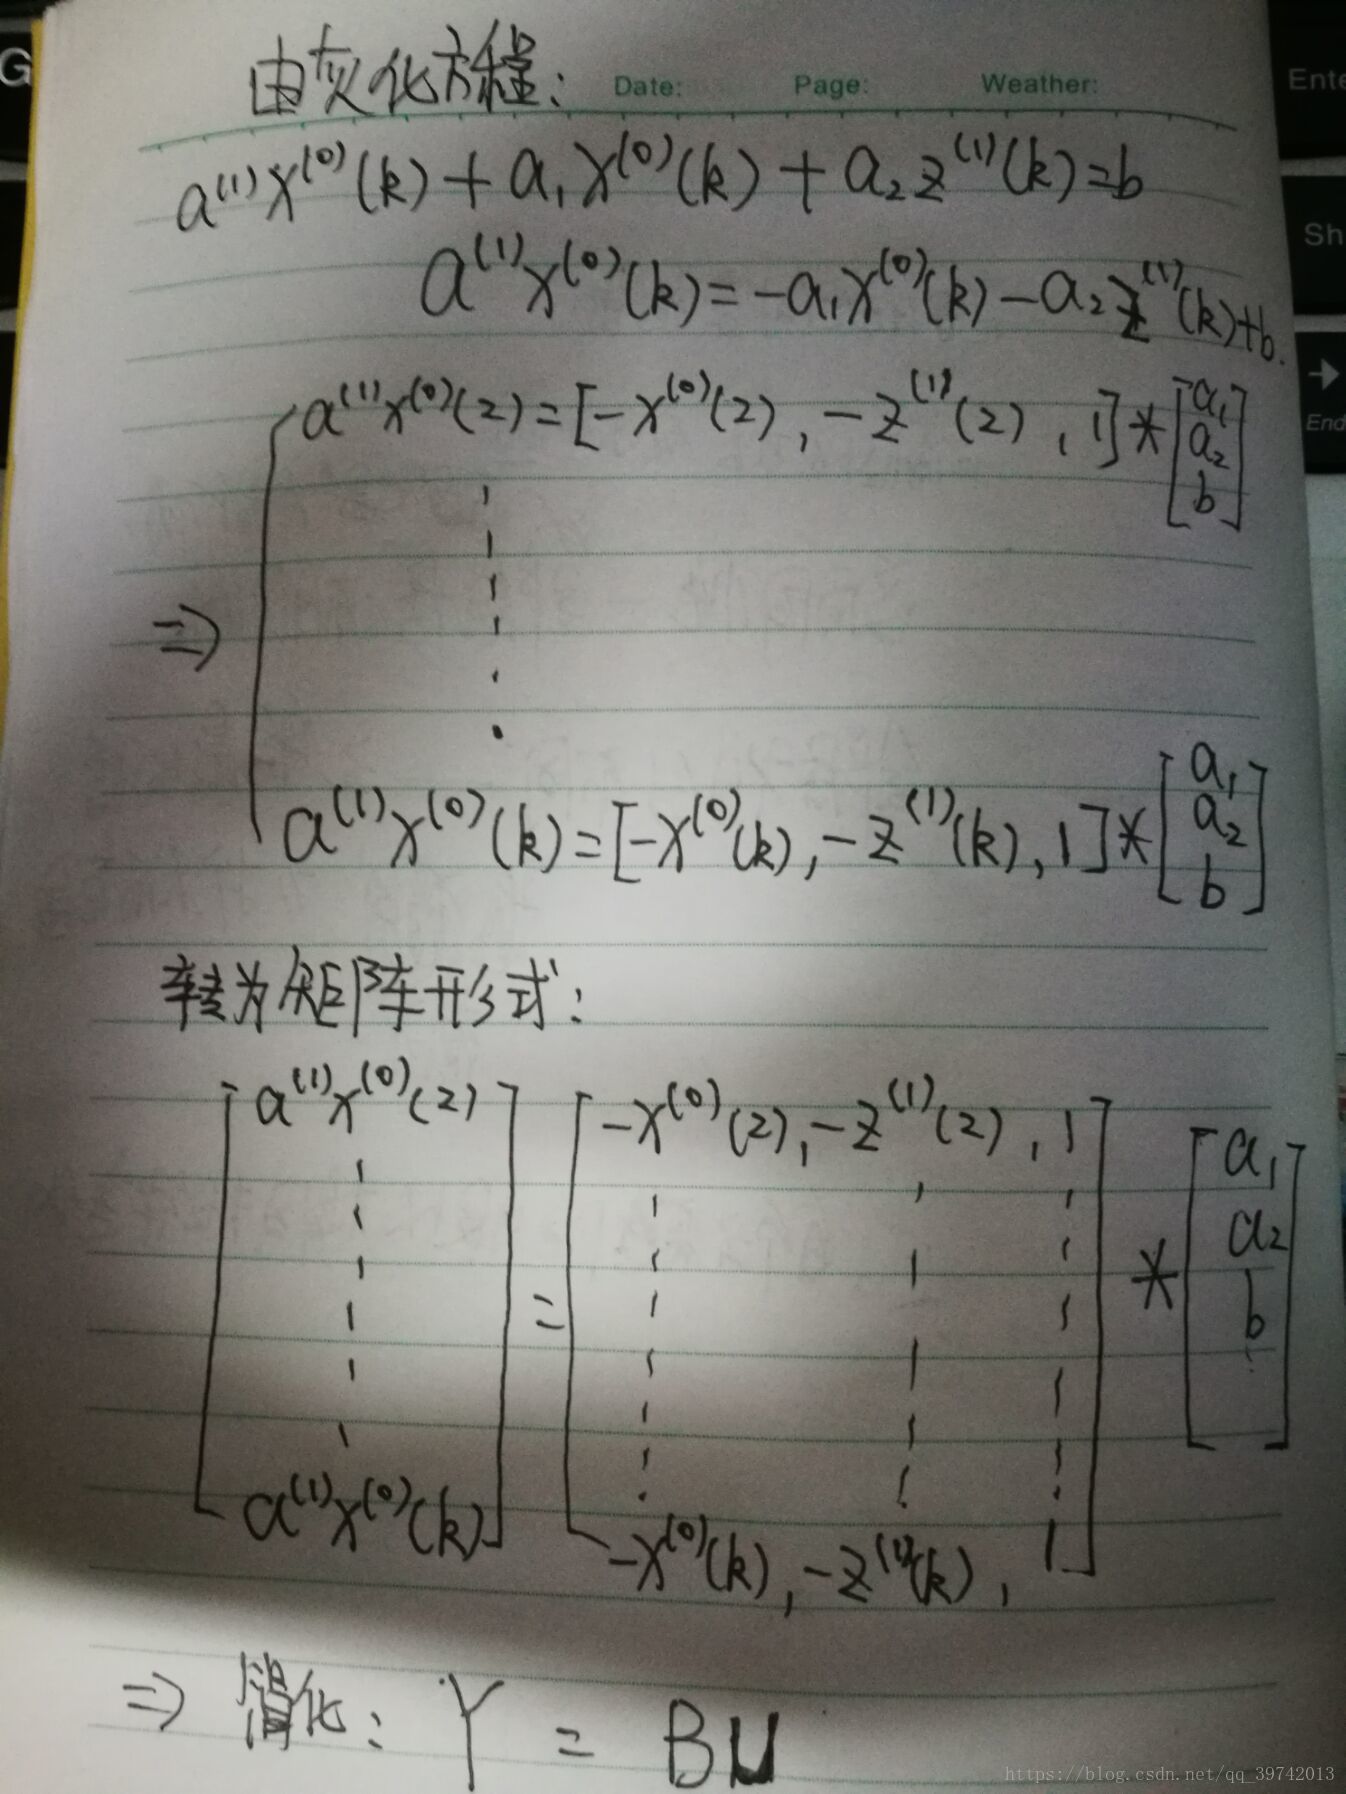 由灰化方程: Date: Page: Weather:
a⁽¹⁾x⁽⁰⁾(k)+a₁x⁽⁰⁾(k)+a₂z⁽¹⁾(k)=b
a⁽¹⁾x⁽⁰⁾(k)=-a₁x⁽⁰⁾(k)-a₂z⁽¹⁾(k)+b.
a⁽¹⁾x⁽⁰⁾(2)=[-x⁽⁰⁾(2),-z⁽¹⁾(2),1]*[a₁ a₂ b]
⇒
a⁽¹⁾x⁽⁰⁾(k)=[-x⁽⁰⁾(k),-z⁽¹⁾(k),1]*[a₁ a₂ b]
转为矩阵形式:
[a⁽¹⁾x⁽⁰⁾(2) ⋮ a⁽¹⁾x⁽⁰⁾(k)] = [-x⁽⁰⁾(2),-z⁽¹⁾(2),1 ⋮ -x⁽⁰⁾(k),-z⁽¹⁾(k),1] * [a₁ a₂ b]
⇒ 化: Y = BU
G
Ente
Sh
→
End
https://blog.csdn.net/qq_39742013